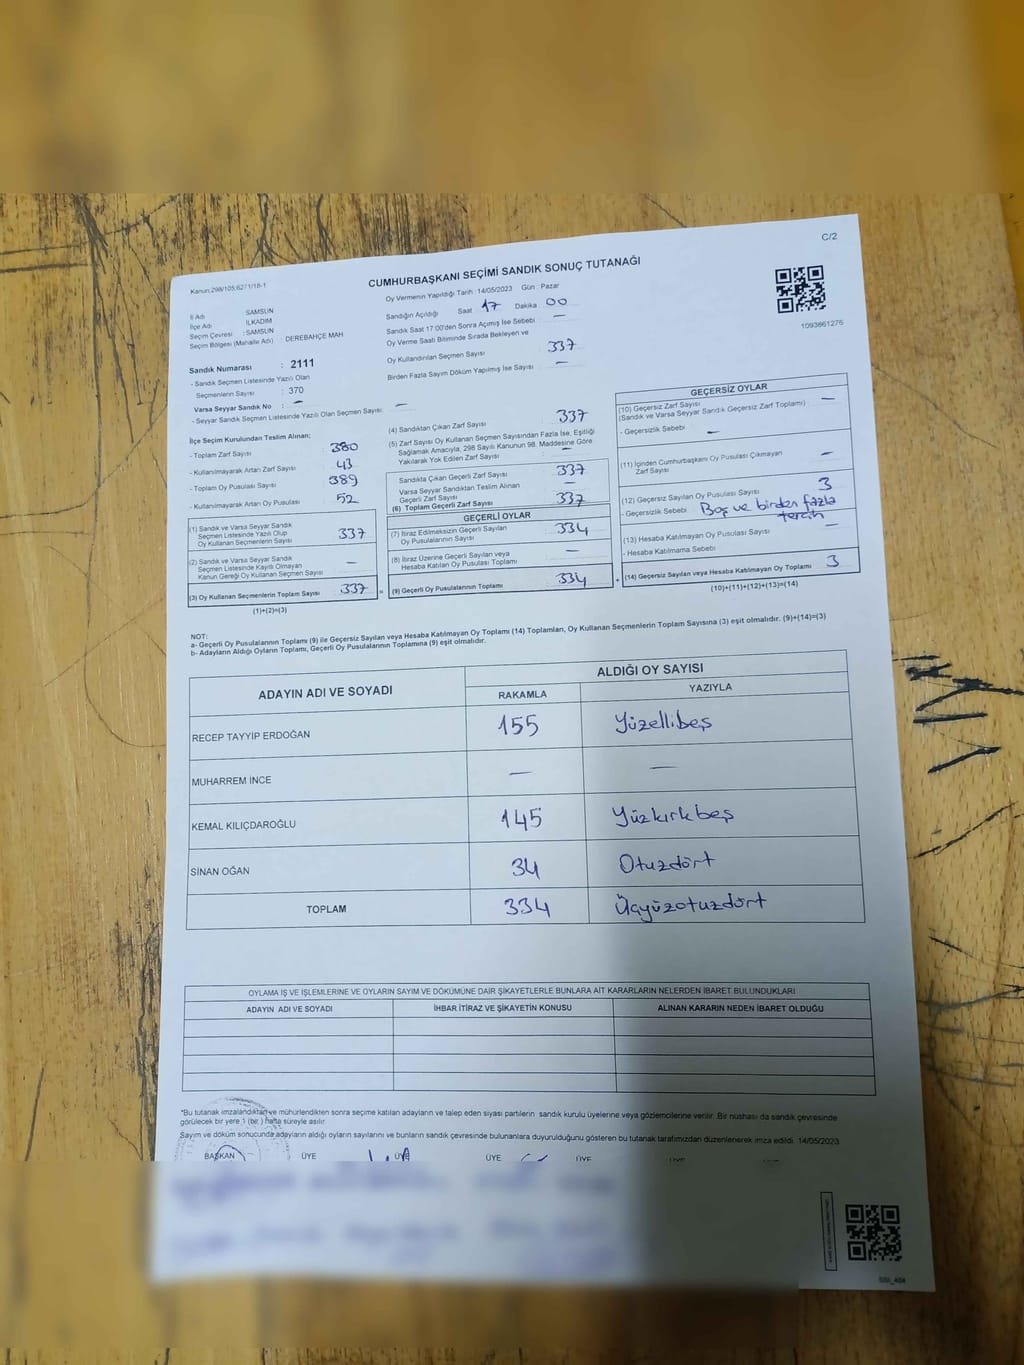 C/2
Kanun:298/105;6271/18-1
CUMHURBAŞKANI SEÇİMİ SANDIK SONUÇ TUTANAĞI
1093861276
İl Adı : SAMSUN
İlçe Adı : İLKADIM
Seçim Çevresi : SAMSUN
Seçim Bölgesi (Mahalle Adı) : DEREBAHÇE MAH
Sandık Numarası : 2111
- Sandık Seçmen Listesinde Yazılı Olan
Seçmenlerin Sayısı : 370
Varsa Seyyar Sandık No : —
- Seyyar Sandık Seçmen Listesinde Yazılı Olan Seçmen Sayısı: —
Oy Vermenin Yapıldığı Tarih : 14/05/2023 Gün : Pazar
Sandığın Açıldığı Saat 17 Dakika 00
Sandık Saat 17:00'den Sonra Açılmış İse Sebebi : —
Oy Verme Saati Bitiminde Sırada Bekleyen ve
Oy Kullandırılan Seçmen Sayısı : 337
Birden Fazla Sayım Döküm Yapılmış İse Sayısı : —
İlçe Seçim Kurulundan Teslim Alınan;
- Toplam Zarf Sayısı : 380
- Kullanılmayarak Artan Zarf Sayısı : 43
- Toplam Oy Pusulası Sayısı : 389
- Kullanılmayarak Artan Oy Pusulası : 52
(1) Sandık ve Varsa Seyyar Sandık
Seçmen Listesinde Yazılı Olup
Oy Kullanan Seçmenlerin Sayısı : 337
(2) Sandık ve Varsa Seyyar Sandık
Seçmen Listesinde Kayıtlı Olmayan
Kanun Gereği Oy Kullanan Seçmen Sayısı : —
(3) Oy Kullanan Seçmenlerin Toplam Sayısı : 337 =
(1)+(2)=(3)
(4) Sandıktan Çıkan Zarf Sayısı : 337
(5) Zarf Sayısı Oy Kullanan Seçmen Sayısından Fazla İse, Eşitliği
Sağlamak Amacıyla, 298 Sayılı Kanunun 98. Maddesine Göre
Yakılarak Yok Edilen Zarf Sayısı : —
Sandıkta Çıkan Geçerli Zarf Sayısı : 337
Varsa Seyyar Sandıktan Teslim Alınan
Geçerli Zarf Sayısı : —
(6) Toplam Geçerli Zarf Sayısı : 337
GEÇERLİ OYLAR
(7) İtiraz Edilmeksizin Geçerli Sayılan
Oy Pusulalarının Sayısı : 334
(8) İtiraz Üzerine Geçerli Sayılan veya
Hesaba Katılan Oy Pusulası Toplamı : —
(9) Geçerli Oy Pusulalarının Toplamı : 334 +
GEÇERSİZ OYLAR
(10) Geçersiz Zarf Sayısı
(Sandık ve Varsa Seyyar Sandık Geçersiz Zarf Toplamı) : —
- Geçersizlik Sebebi : —
(11) İçinden Cumhurbaşkanı Oy Pusulası Çıkmayan
Zarf Sayısı : —
(12) Geçersiz Sayılan Oy Pusulası Sayısı : 3
- Geçersizlik Sebebi : Boş ve birden fazla
tercih
(13) Hesaba Katılmayan Oy Pusulası Sayısı : —
- Hesaba Katılmama Sebebi :
(14) Geçersiz Sayılan veya Hesaba Katılmayan Oy Toplamı : 3
(10)+(11)+(12)+(13)=(14)
NOT:
a- Geçerli Oy Pusulalarının Toplamı (9) ile Geçersiz Sayılan veya Hesaba Katılmayan Oy Toplamı (14) Toplamları, Oy Kullanan Seçmenlerin Toplam Sayısına (3) eşit olmalıdır. (9)+(14)=(3)
b- Adayların Aldığı Oyların Toplamı, Geçerli Oy Pusulalarının Toplamına (9) eşit olmalıdır.
ADAYIN ADI VE SOYADI ALDIĞI OY SAYISI
RAKAMLA YAZIYLA
RECEP TAYYİP ERDOĞAN 155 Yüzellibeş
MUHARREM İNCE — —
KEMAL KILIÇDAROĞLU 145 Yüzkırkbeş
SİNAN OĞAN 34 Otuzdört
TOPLAM 334 Üçyüzotuzdört
OYLAMA İŞ VE İŞLEMLERİNE VE OYLARIN SAYIM VE DÖKÜMÜNE DAİR ŞİKAYETLERLE BUNLARA AİT KARARLARIN NELERDEN İBARET BULUNDUKLARI
ADAYIN ADI VE SOYADI İHBAR İTİRAZ VE ŞİKAYETİN KONUSU ALINAN KARARIN NEDEN İBARET OLDUĞU
*Bu tutanak imzalandıktan ve mühürlendikten sonra seçime katılan adayların ve talep eden siyasi partilerin sandık kurulu üyelerine veya gözlemcilerine verilir. Bir nüshası da sandık çevresinde
görülecek bir yere 1 (bir ) hafta süreyle asılır.
Sayım ve döküm sonucunda adayların aldığı oyların sayılarını ve bunların sandık çevresinde bulunanlara duyurulduğunu gösteren bu tutanak tarafımızdan düzenlenerek imza edildi. 14/05/2023
BAŞKAN ÜYE ÜYE ÜYE ÜYE